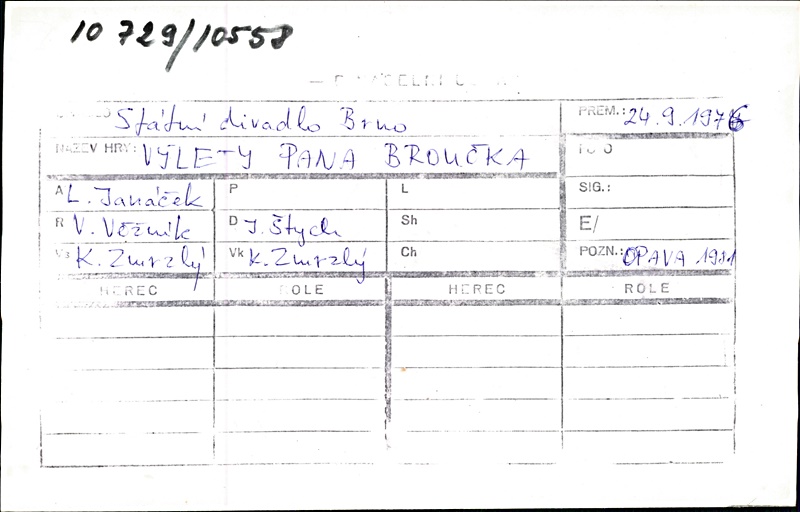 10 729/10558
Státní divadlo Brno PREM.: 24.9.197
NÁZEV HRY: VÝLETY PANA BROUČKA
A L. Janáček P L SIG.:
R V. Věžník D J. Štych Sh E/
K. Zmrzlý Vk K. Zmrzlý Ch POZN.: OPAVA
HEREC ROLE HEREC ROLE